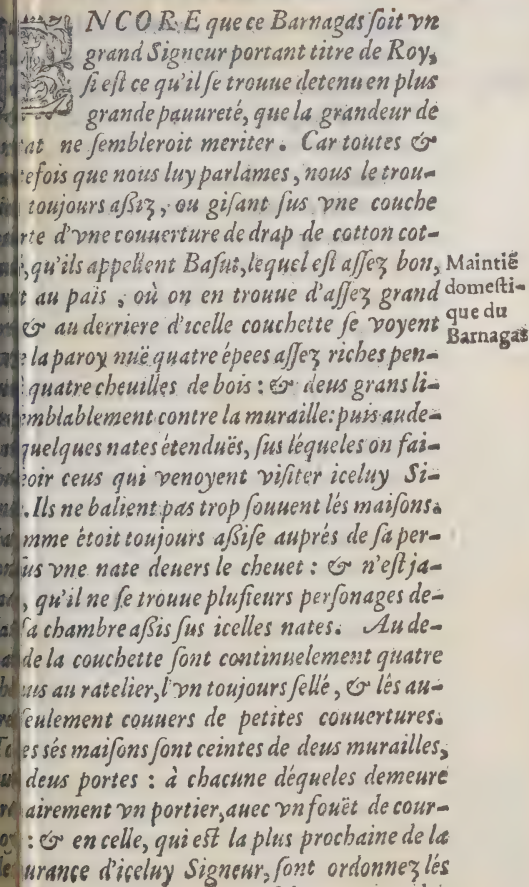 ENCORE que ce Barnagas soit vn
grand Signeur portant titre de Roy,
si est ce qu'il se trouue detenu en plus
grande pauureté, que la grandeur de
at ne sembleroit meriter. Car toutes &
efois que nous luy parlames, nous le trou-
toujours aßiz, ou gisant sus vne couche
rte d'vne couuerture de drap de cotton cot-
, qu'ils appellent Basut, lequel est assez bon,
t au païs, où on en trouue d'assez grand
& au derriere d'icelle couchette se voyent
e la paroy nuë quatre épees assez riches pen-
quatre cheuilles de bois : & deus grans li-
emblablement contre la muraille: puis aude-
quelques nates étenduës, sus léqueles on fai-
eoir ceus qui venoyent visiter iceluy Si-
. Ils ne balient pas trop souuent lés maisons.
mme étoit toujours aßise auprés de sa per-
us vne nate deuers le cheuet : & n'est ja-
, qu'il ne se trouue plusieurs personages de-
sa chambre aßis sus icelles nates. Au de-
de la couchette sont continuelement quatre
us au ratelier, l'vn toujours sellé, & lés au-
seulement couuers de petites couuertures.
es sés maisons sont ceintes de deus murailles,
deus portes : à chacune déqueles demeure
airement vn portier, auec vn fouët de cour-
: & en celle, qui est la plus prochaine de la
urance d'iceluy Signeur, sont ordonnez lés
Maintiē
domesti-
que du
Barnagas